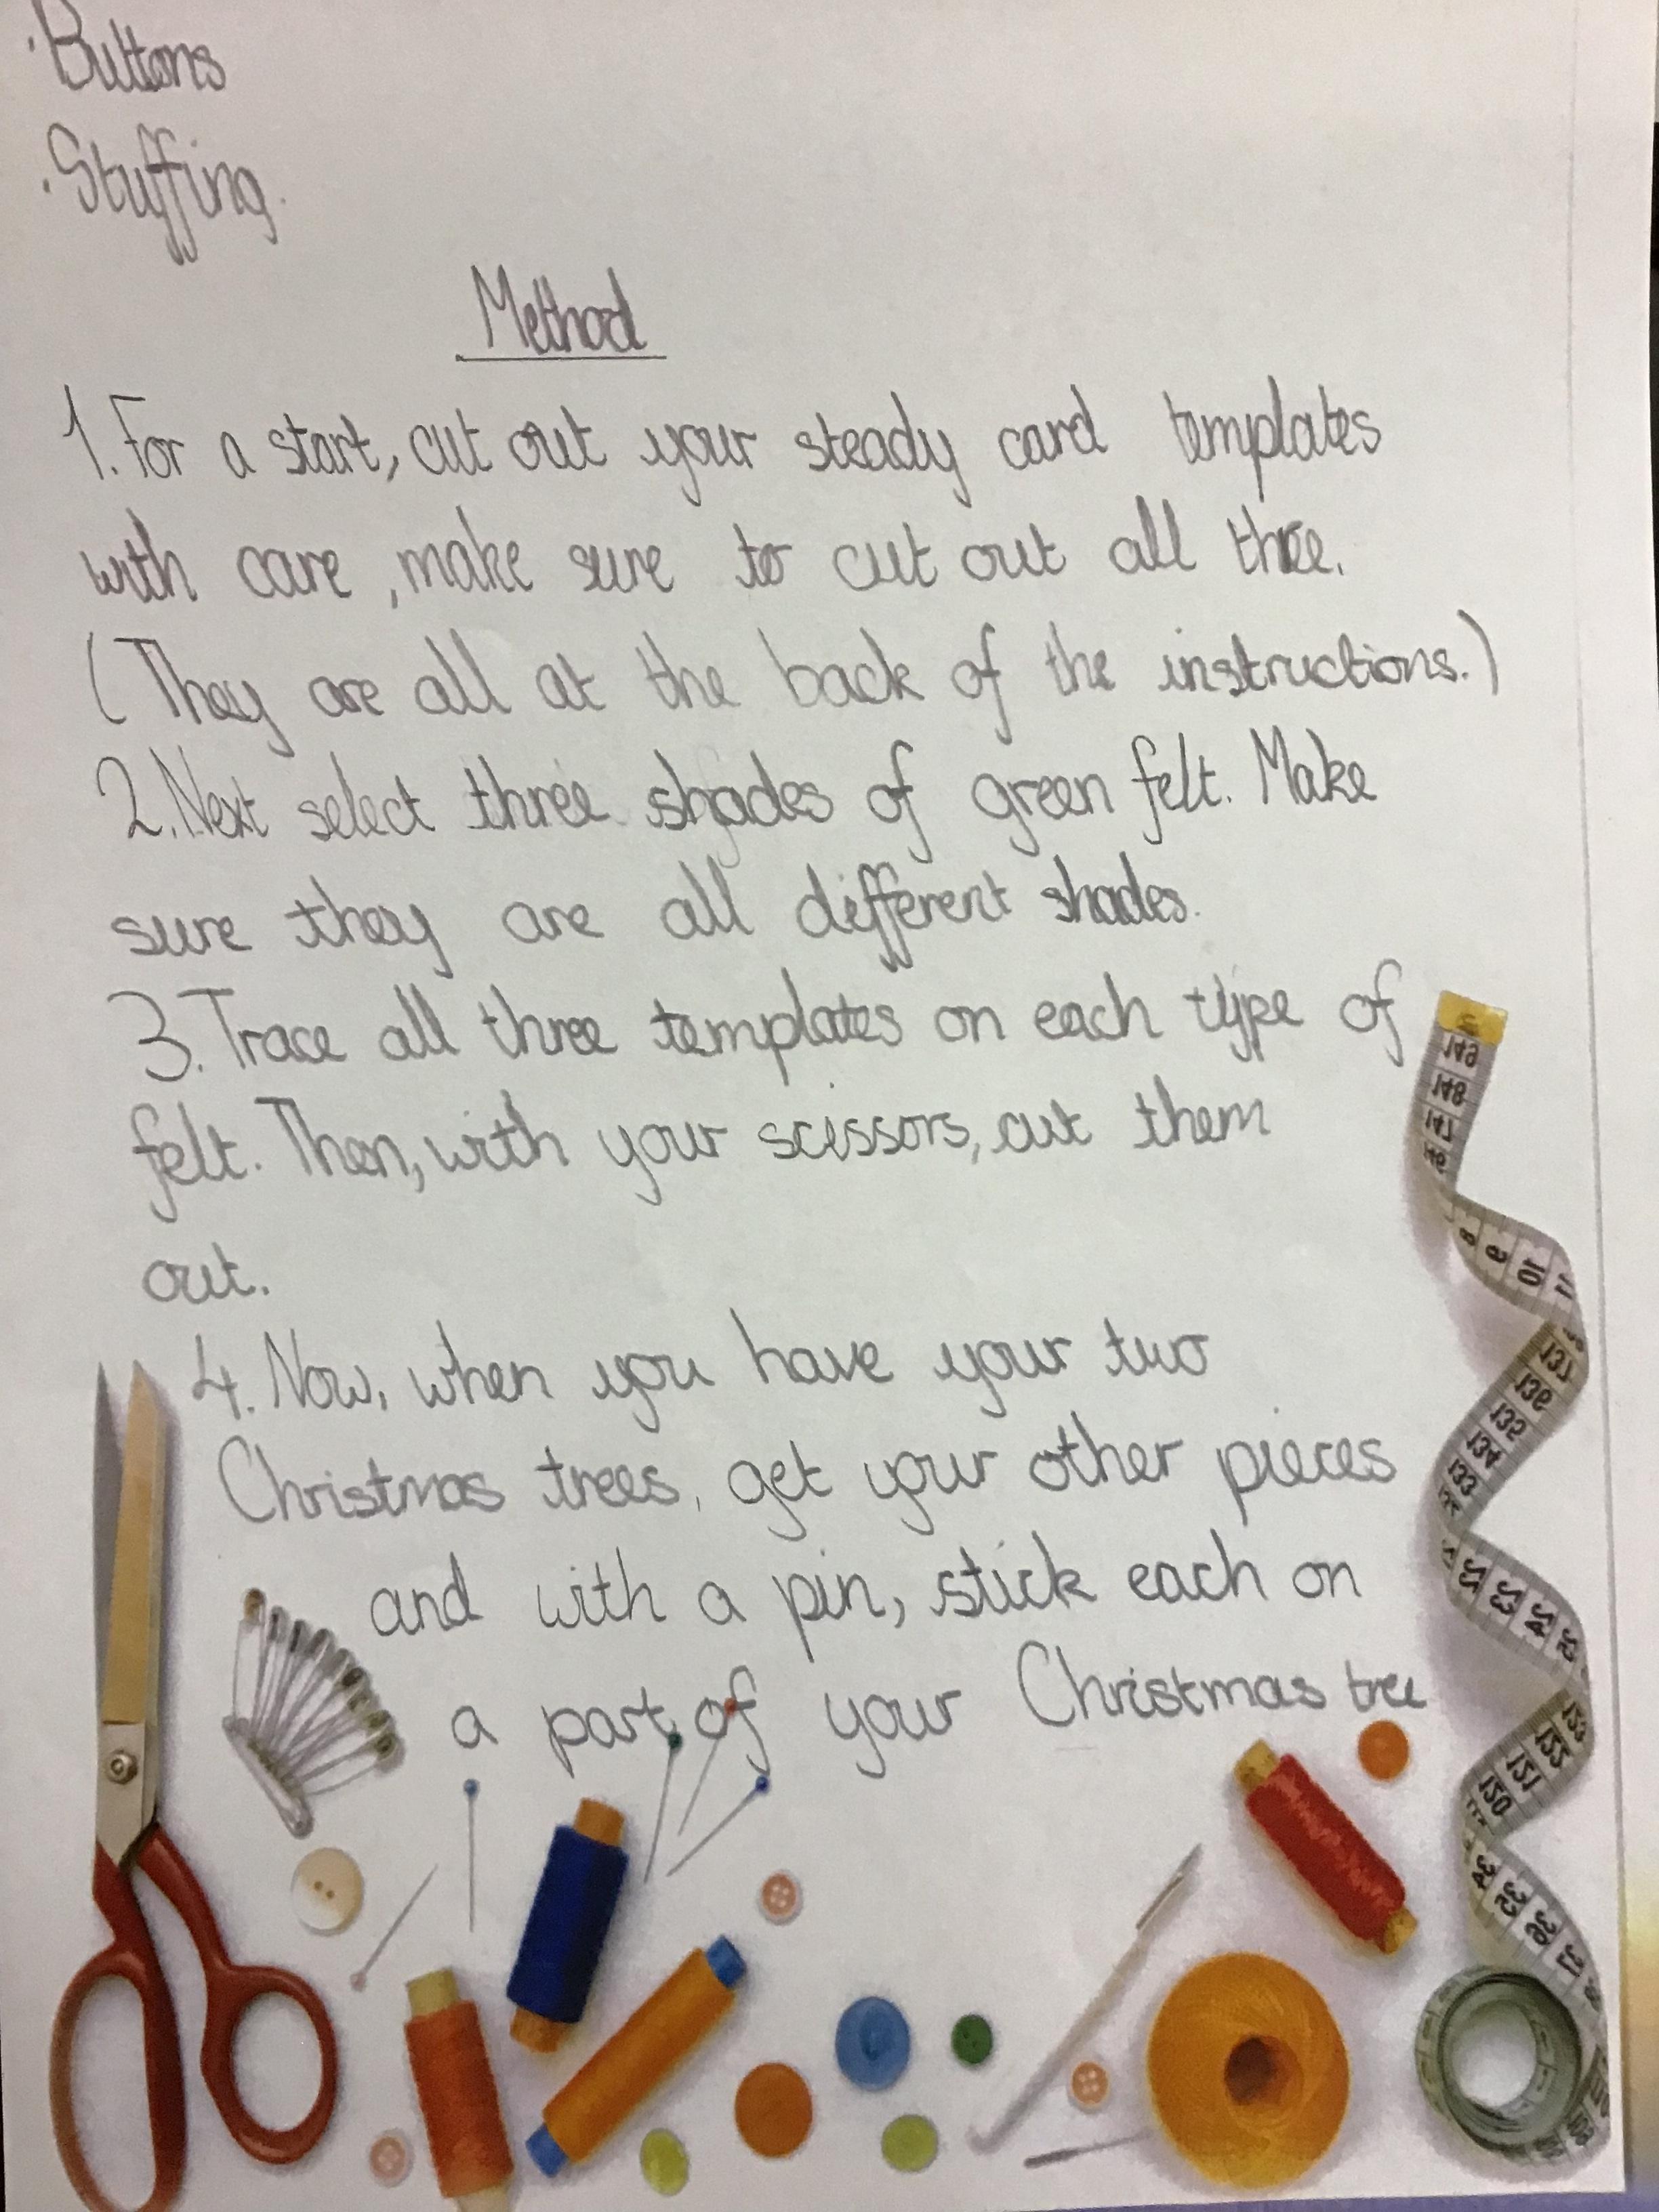 ·Buttons
·Stuffing.
Method
1. For a start, cut out your steady card templates
with care, make sure to cut out all three.
(They are all at the back of the instructions.)
2. Next select three shades of green felt. Make
sure they are all different shades.
3. Trace all three templates on each type of
felt. Then, with your scissors, cut them
out.
4. Now, when you have your two
Christmas trees, get your other pieces
and with a pin, stick each on
a part of your Christmas tree
149
148
147
146
8
9
10
11
137
136
135
134
133
22
23
24
25
123
122
121
120
34
35
36
37